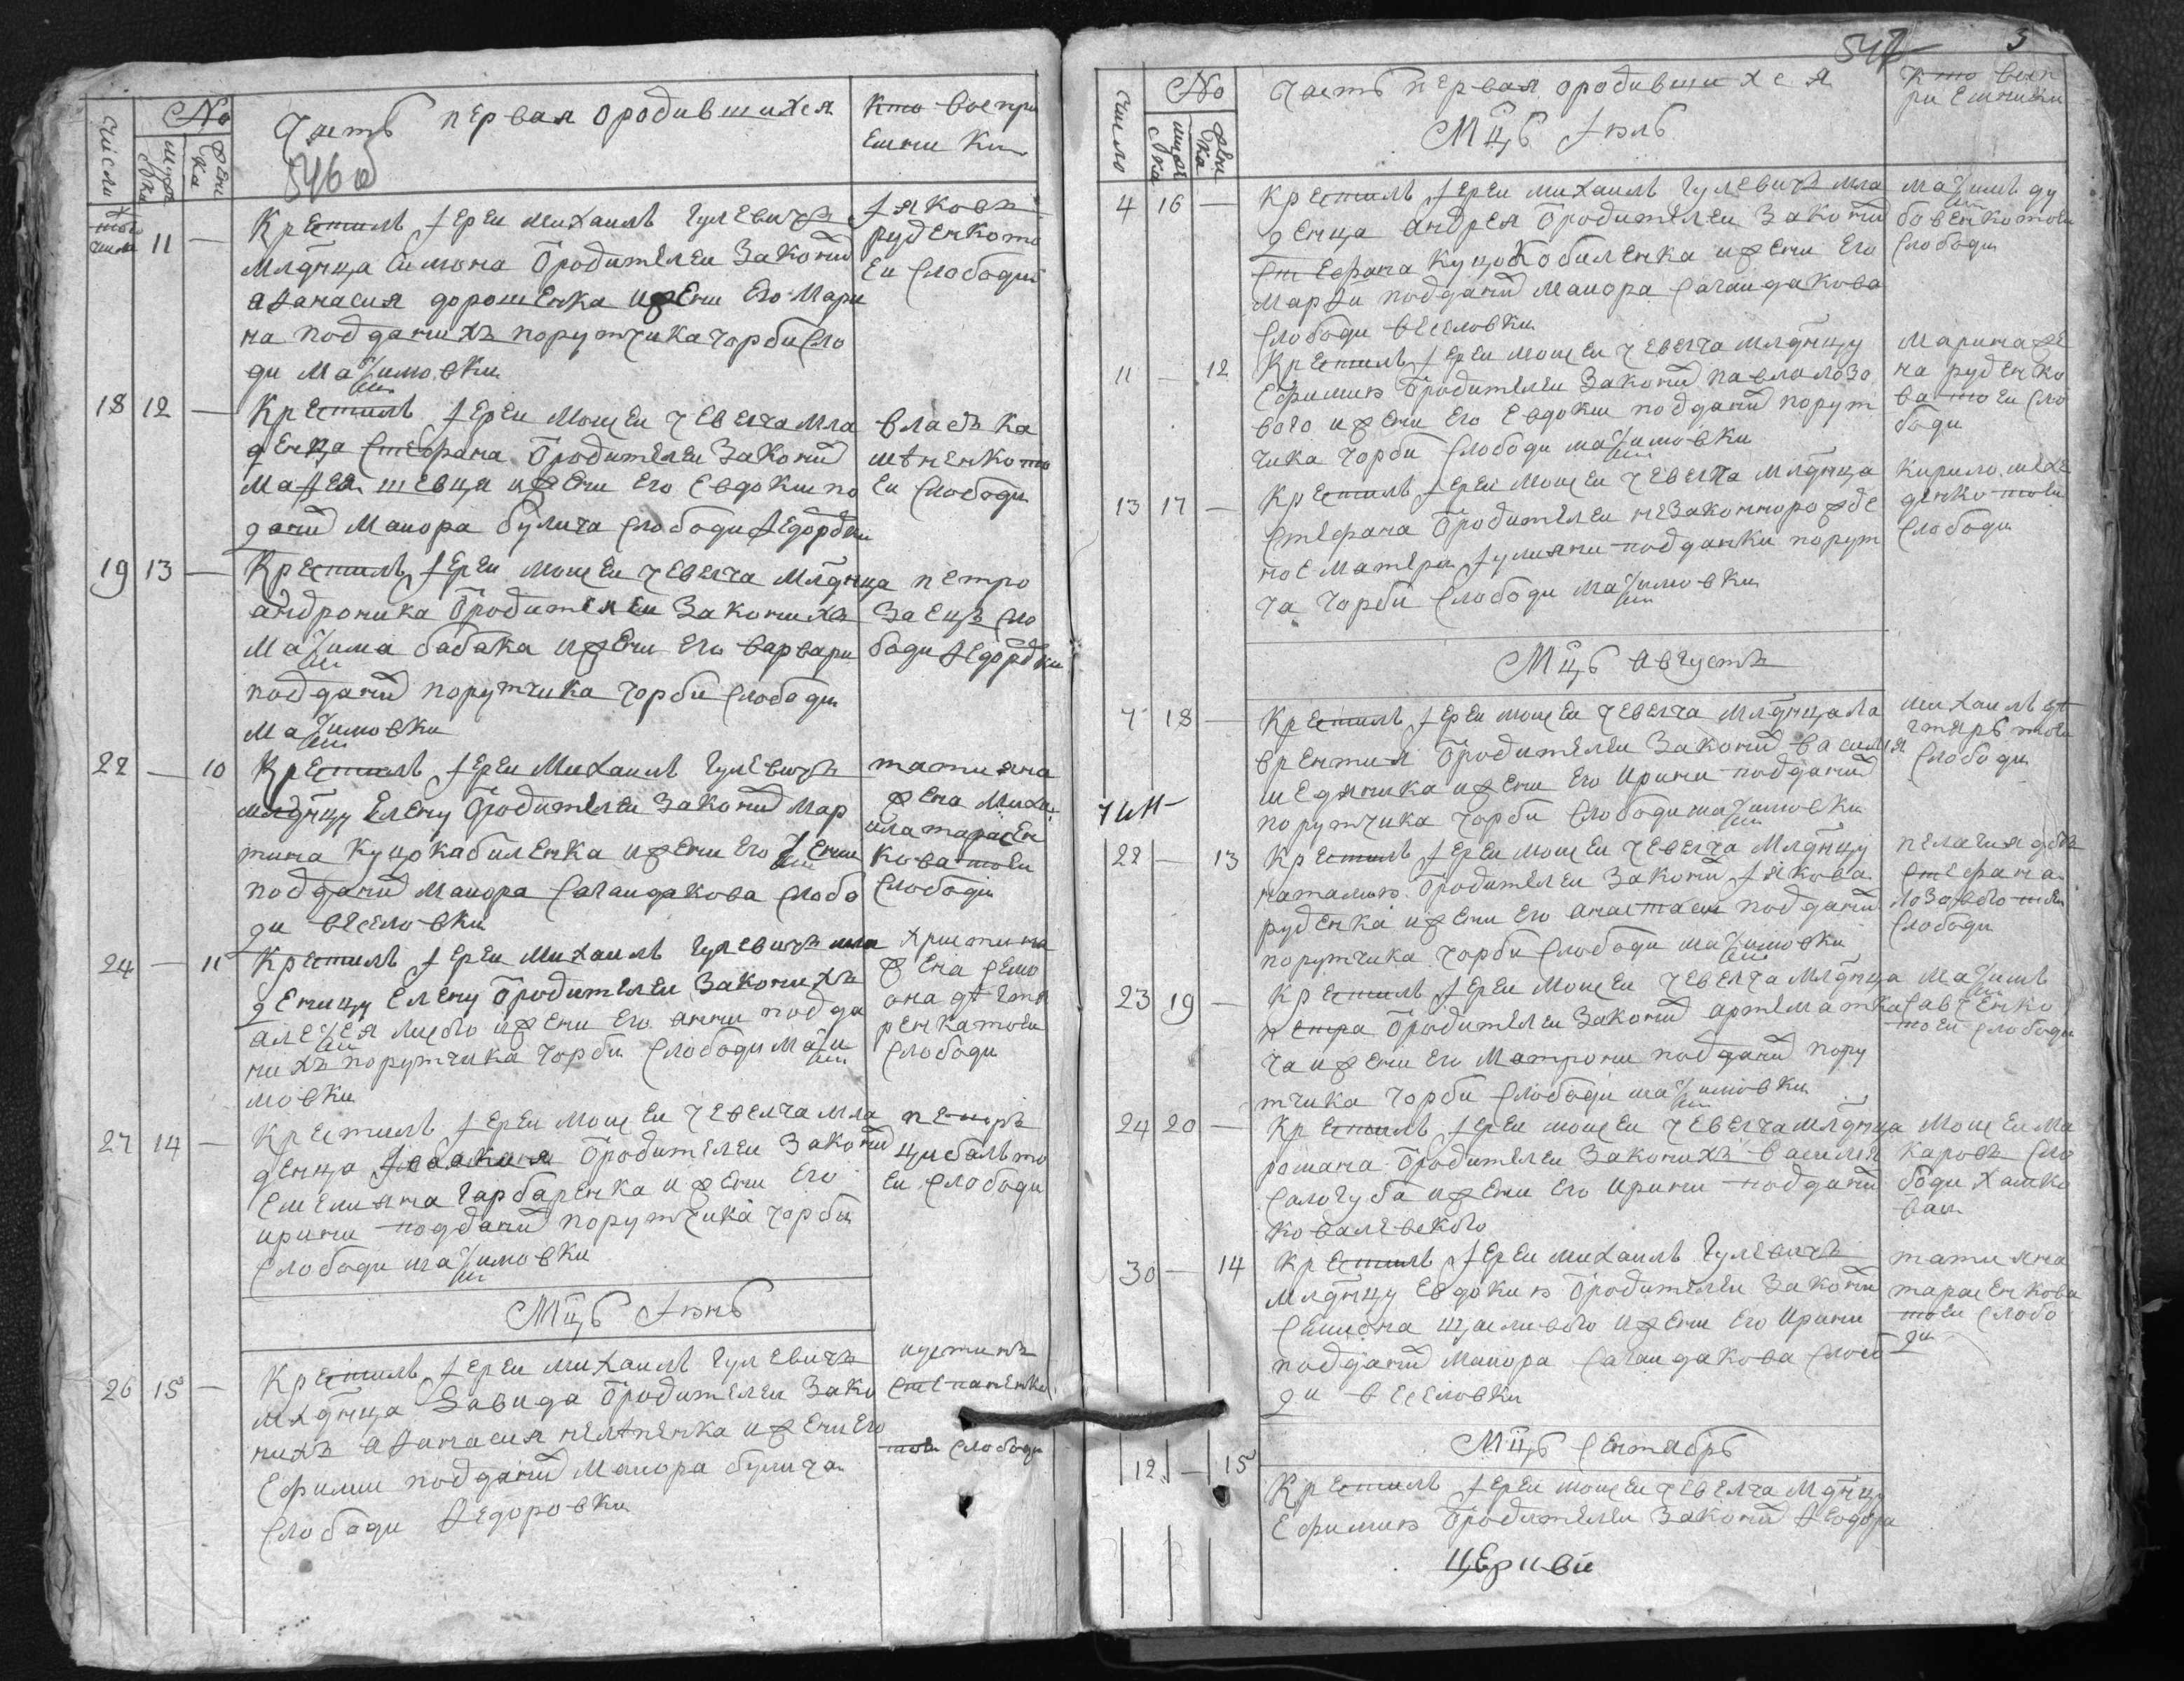 No
Число
мужеска
женска
Часть первая ородившихся
546 об
Кто воспри
емники
того
числа 11 — Крестилъ іереи Михаилъ Гулевичъ
Мл҃днца Симона ѿродителеи Закони
аѳанасия дорошенка ижени Его Мари
на подданихъ порутчика Чорби Сло
ди Маѯимовки
Іяковъ
руденко то
еи Слободи
18 12 — Крестилъ іереи Моисеи Чевелча Мла
денца Стефана ѿродителеи Закони
Маѳея шевця ижени Его Евдокии по
дани Маиора булича Слободи Ѳедорвки
власъ ка
мѣненко то
еи Слободи
19 13 — Крестилъ іереи моисеи Чевелча Мл҃днца
андроника ѿродителеи Закониxъ
Маѯима бабака ижени Его варвари
поддани порутчика Чорби Слободи
Маѯимовки
петро
Заецъ Сло
боди Ѳедорвки
22 — 10 Крестилъ іереи Михаилъ Гулевичъ
мл҃днцу Елену ѿродителеи Закони Мар
тина Куцокабиленка ижени Его Ѯени
поддани Маиора Сагандакова Слобо
ди веселовки
татияна
жена Миха
ила тарасен
кова тоеи
Слободи
24 — 11 Крестилъ іереи Михаилъ Гулевичъ мла
деницу Елену ѿродителеи Закониxъ
алеѯея лисого ижени Его анни подда
нихъ порутчика Чорби Слободи Маѯи
мовки
христина
жена Семо
она дѣгтя
ренка тоеи
Слободи
27 14 — Крестилъ іереи Моисеи Чевелча мла
денца Іоанкия ѿродителеи Закони
Емелияна Гарбаренка ижени Его
ирини поддани порутчика Чорби
Слободи маѯимовки
петръ
цибаль то
еи Слободи
Мц҃ъ Іюнь
26 15 — Крестилъ іереи михаилъ Гулевичъ
мл҃днца Давида ѿродителеи Зако
нихъ аѳанасия нелѣпенка ижени Его
Ефимии поддани Маиора булича
Слободи Ѳедоровки
иустинъ
Степаненко
тоеи Слободи
547 3
No
Число
мужеска
женска
Часть первая ородившихся
Кто восп
риемники
Мц҃ъ Іюль
4 16 — Крестилъ іереи михаилъ Гулевичъ мла
денца андрея ѿродителеи Закони
Стефана КуцоКобиленка ижени Его
Марѳи поддани Маиора Сагандакова
Слободи веселовки
Маѯимъ ду
бовенко тоеи
Слободи
11 — 12 Крестилъ іереи моисеи Чевелча мл҃днцу
Ефимию ѿродителеи Закони павла лозо
вого ижени Его Евдокии поддани порут
чика Чорби Слободи маѯимовки
Марина же
на руденко
ва тоеи Сло
боди
13 17 — Крестилъ іереи Моисеи Чевелча мл҃днца
Стефана ѿродителеи незаконнорожде
ное матери іулияни подданки порут
ча Чорби Слободи Маѯимовки
Кирило
денко тоеи
Слободи
Мц҃ъ августъ
7 18 — Крестилъ іереи моисеи Чевелча мл҃днца Ла
врентия ѿродителеи Закони василя
шедяника ижени Его Ирини поддани
порутчика Чорби Слободи маѯимовки
михаилъ дѣ
гтярь тоеи
Слободи
22 — 13 Крестилъ іереи моисеи Чевелча Мл҃днцу
наталию ѿродителеи Закони іякова
руденка ижени Его анастасии поддани
порутчика Чорби Слободи маѯимовки
пелагия дочь
Стефана
Лозового тоеи
Слободи
23 19 — Крестилъ іереи Моисеи Чевелча Мл҃днца
петра ѿродителеи Закони артема тка
ча ижени Его Матрони поддани пору
тчика Чорби Слободи маѯимовки
Маѯимъ
Савченко
тоеи Слободи
24 20 — Крестилъ іереи моисеи Чевелча мл҃днца
романа ѿродителеи Закониxъ василя
Сологуба ижени Его Ирини поддани
Ковалевского
Моисеи Ма
каровъ Сло
боди
30 — 14 Крестилъ іереи михаилъ Гулевичъ
Мл҃днцу Евдокию ѿродителеи Закони
Симиона щасливого ижени Его Ирини
поддани Маиора Сагандакова Слобо
ди веселовки
татияна
тарасенкова
тоеи Слобо
ди
Мц҃ъ Сентябрь
12 — 15 Крестилъ іереи моисеи Чевелча Мл҃днцу
Ефимию ѿродителеи Закони Ѳеодора